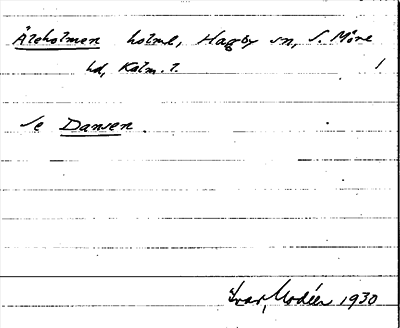 Äreholmen holme, Hagby sn, S. Möre
hd, Kalm. l. 1
Se Dansen.
Ivar Modéer 1930